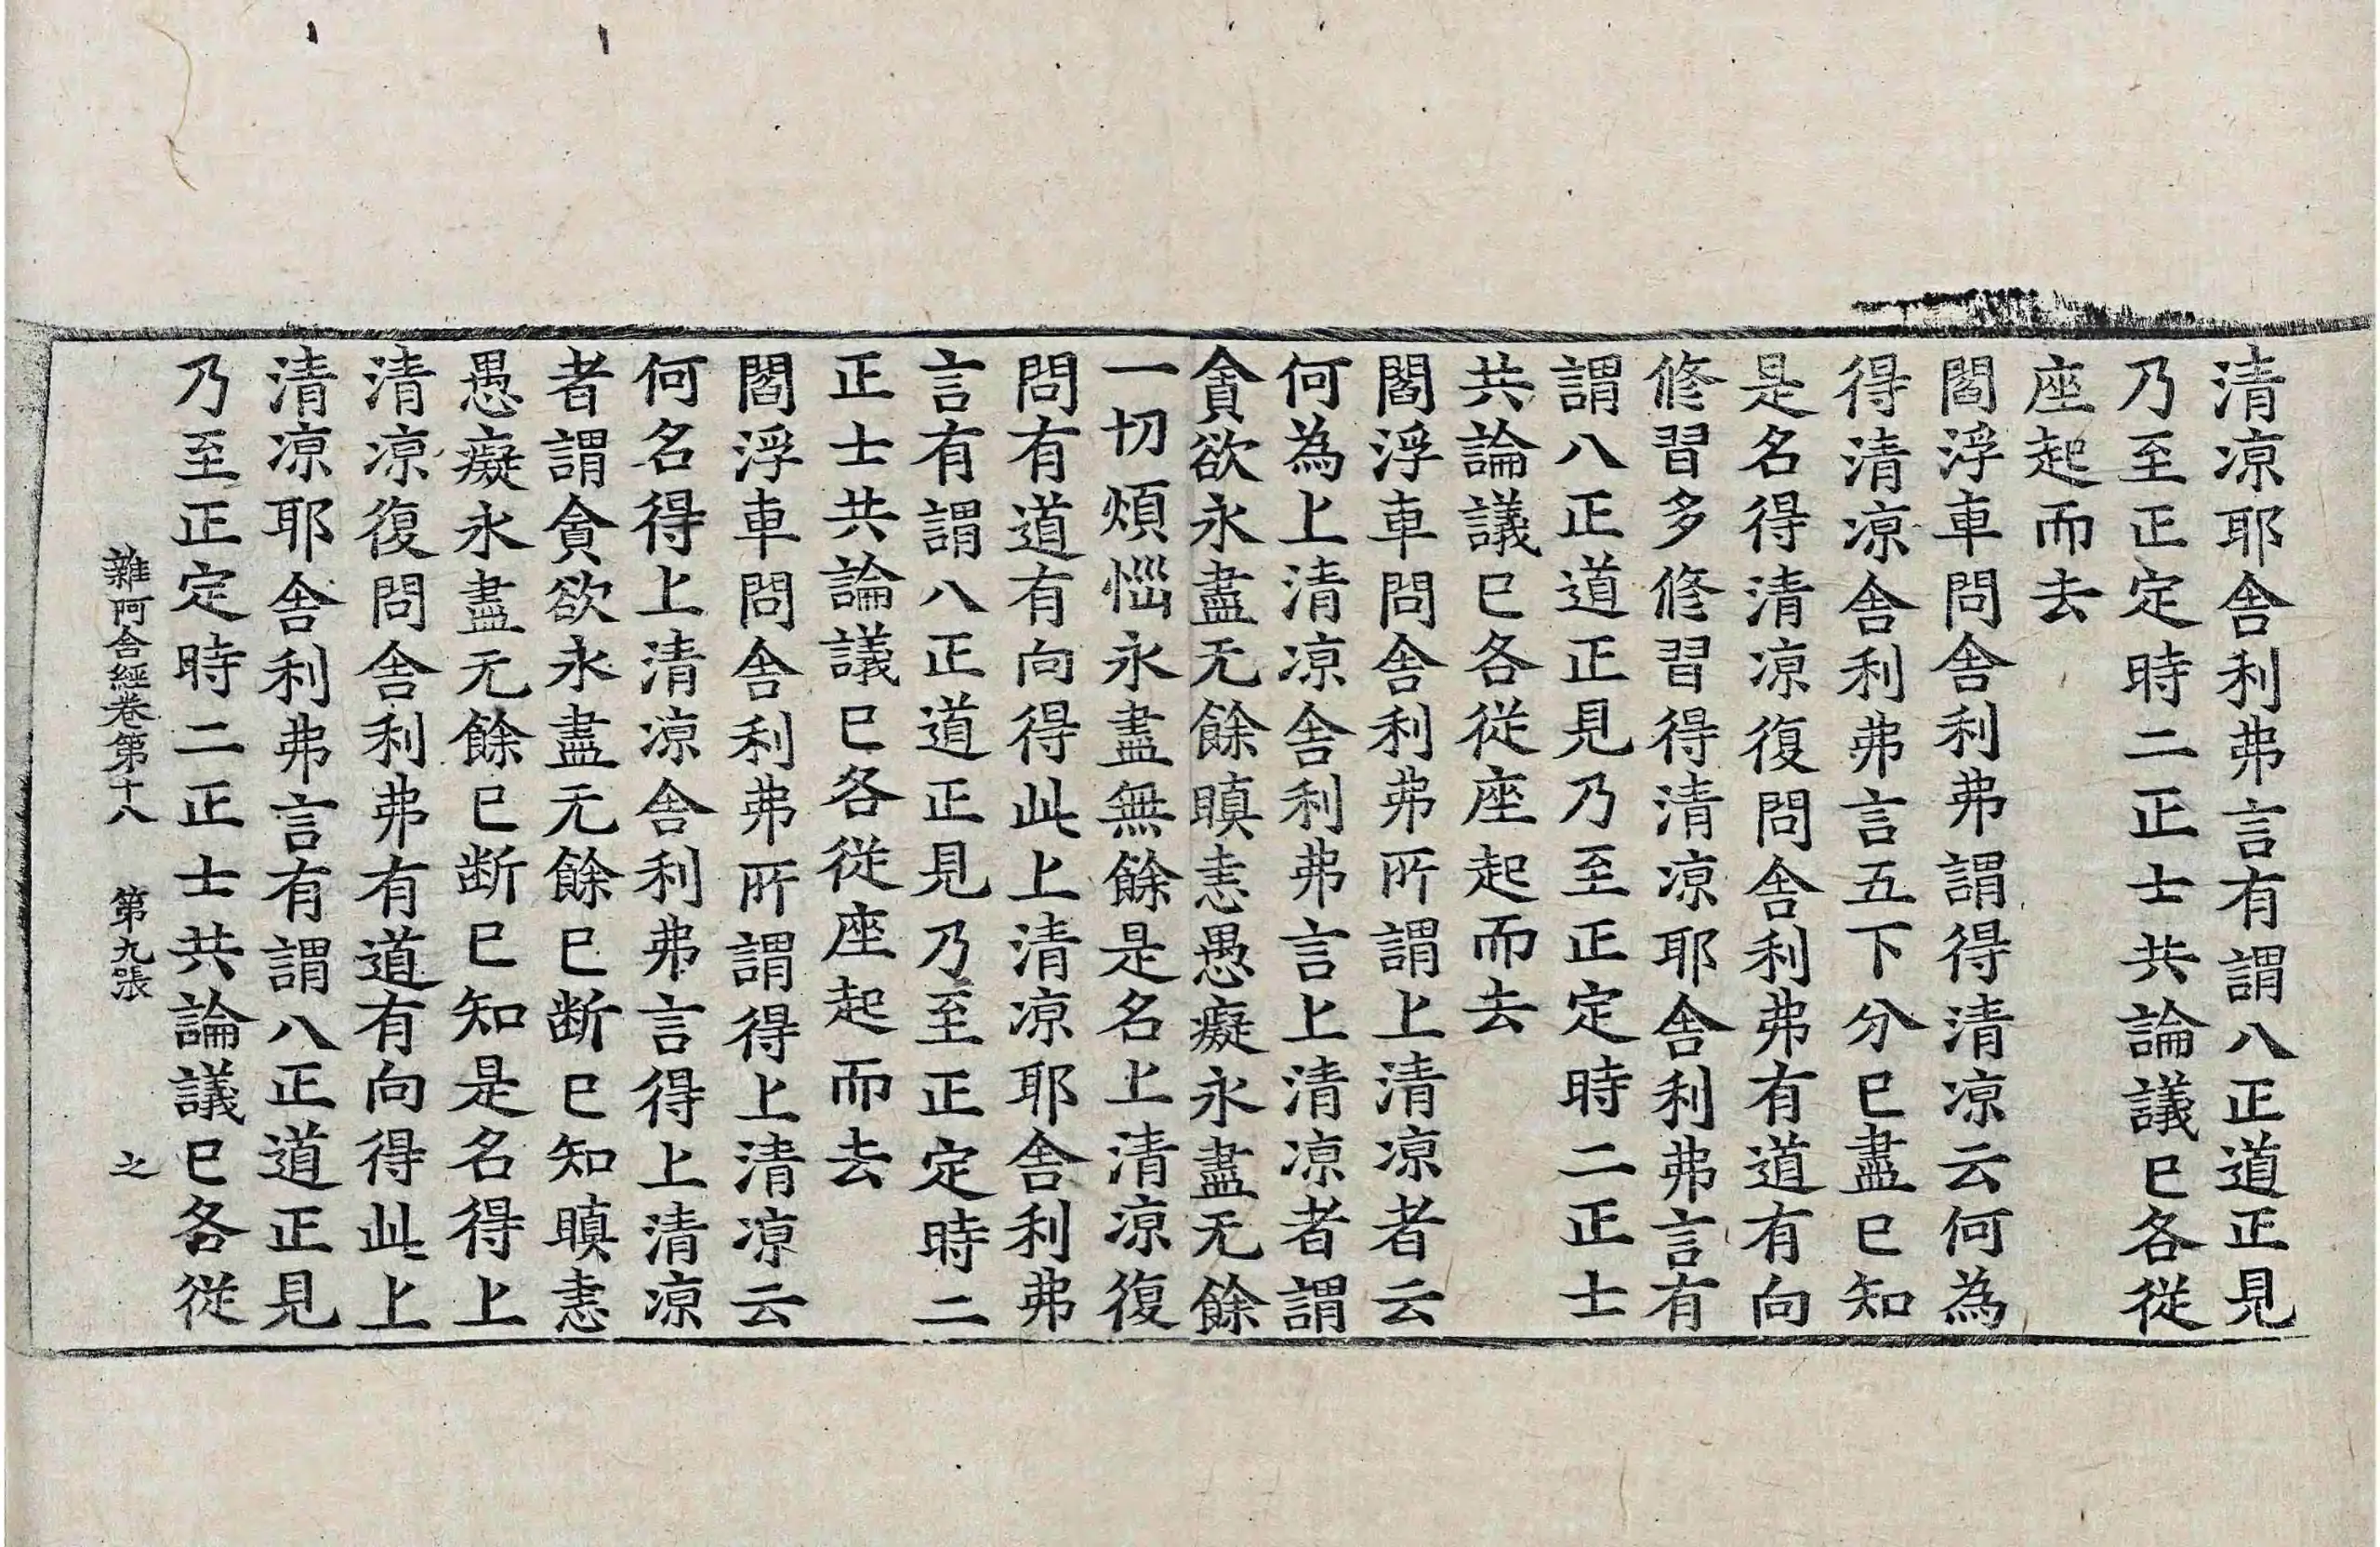 清凉耶舎利弗言有謂八正道正見
乃至正定時二正士共論議已各從
座起而去
閻浮車問舎利弗謂得清凉云何為
得清凉舎利弗言五下分已盡已知
是名得清凉復問舎利弗有道有向
修習多修習得清凉耶舎利弗言有
謂八正道正見乃至正定時二正士
共論議已各從座起而去
閻浮車問舎利弗所謂上清凉者云
何為上清凉舎利弗言上清凉者謂
貪欲永盡无餘瞋恚愚癡永盡无餘
一切煩惱永盡無餘是名上清凉復
問有道有向得此上清凉耶舎利弗
言有謂八正道正見乃至正定時二
正士共論議已各從座起而去
閻浮車問舎利弗所謂得上清凉云
何名得上清凉舎利弗言得上清凉
者謂貪欲永盡无餘已断已知瞋恚
愚癡永盡无餘已断已知是名得上
清凉復問舎利弗有道有向得此上
清凉耶舎利弗言有謂八正道正見
乃至正定時二正士共論議已各從
雜阿含經卷第十八 第九張 之